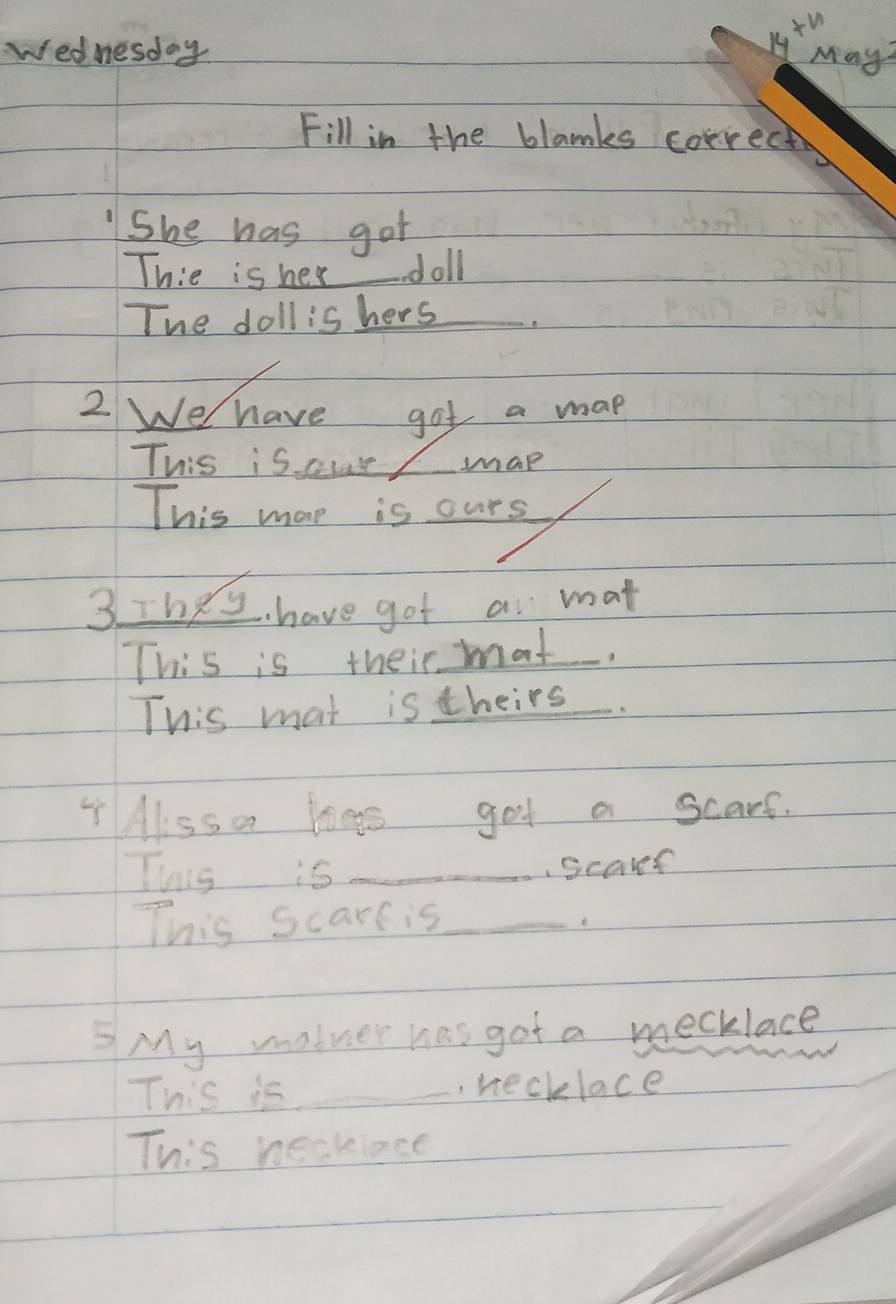 Wednesday
14th May
Fill in the blamks correct
1 She has got
Thie is her ___ doll
The doll is hers ___.
2 We have got a map
This is our ___ map
This map is ours
3 They. have got a mat
This is their mat.
This mat is theirs.
4 Alissa has got a scarf.
This is ___. scarf
This scarf is ___.
5 My mother has got a mecklace
This is ___. necklace
This necklace